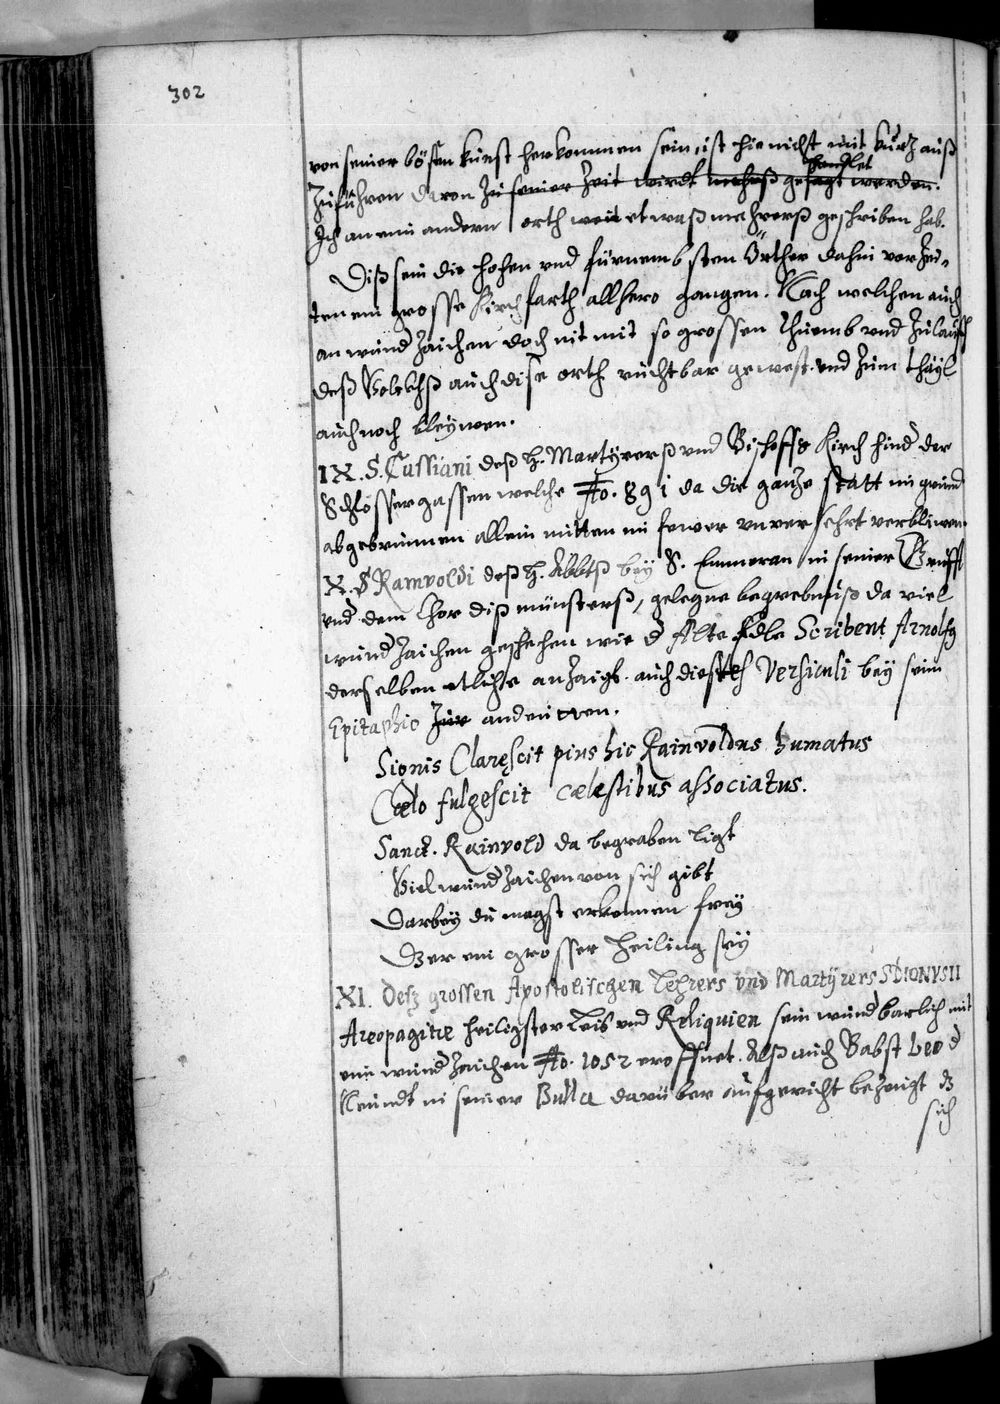 302
von seiner bösen kunst herkommen sein, ist hie nicht mit kurtz auß
Zuführen davon zu seiner Zeit wirdt mehrß gesagt werden.
handlet
Ich an eim andern orth weit etwaß mehrerß geschriben hab.
Diß sein die hohen vnd fürnembsten Örther dahin vor Zei-
ten ein grosse Kirchfarth allhero gangen. Nach welchen auch
an wunderzaichen doch nit mit so grossen Rhuemb vnd Zulauff
deß Volckhß auch dise orth ruchtbar gewest. vnd Zum thayl
auch noch bleywen.
IX. S. Cassiani deß H. Martyrerß vnd Bischoffs Kirch hinder der
Schlossergassen welche Ao. 891 da die ganze statt im grund
abgebrunnen allein mitten im fewer vnversehrt verbliwen.
X. S Ramvoldi deß H. Abbtß bey S. Emmeran in seiner Grufft
vnd dem Chor diß münsterß, gelegne begrebnuß da viel
wunderzaichen geschehen wie d Alte Edle Scribent Arnolfg
derselben etliche anzaigt. auch dise Versiculi bey seim
Epitaphio andeutten.
Signis Claręscit pius hic Rainvoldus humatus
Cœlo fulgescit cœlestibus associatus.
Sanct. Rainvold da begraben ligt
Viel wunderzaichen von sich gibt
Darbey du magst erkennen frey
Der ein grosser Heiling sey
XI. Desz grossen Apostolischen Lehrers vnd Martÿrers S DIONYSII
Areopagitæ heiligster Leib vnd Reliquien sein wunderbarlich mit
eim wunderzaichen Ao. 1052 eroffnet. Alß auch Babst Leo d
Neundt in seiner Bulla darüber aufgericht bezeugt dz
sich